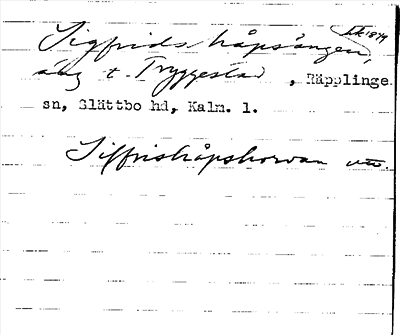 Sigfrids håpsängen, htk 1874
äng t. Tryggestad, Räpplinge
sn, Slättbo hd, Kalm. l.
Siffrishåpshorvan utt.